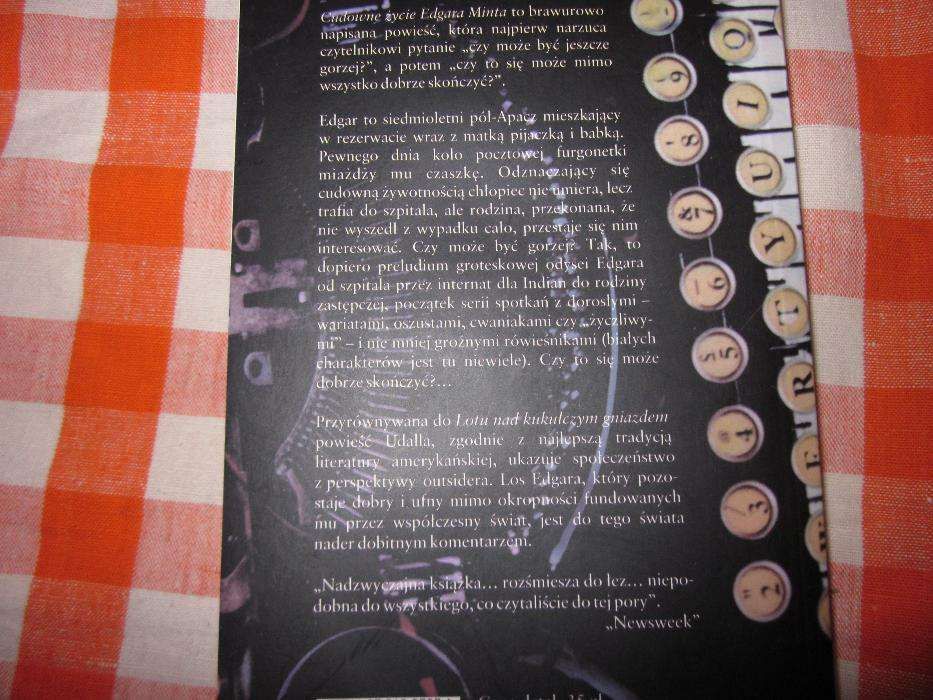 Cudowne życie Edgara Minta to brawurowo
napisana powieść, która najpierw narzuca
czytelnikowi pytanie „czy może być jeszcze
gorzej?”, a potem „czy to się może mimo
wszystko dobrze skończyć?”.
Edgar to siedmioletni pół-Apacz mieszkający
w rezerwacie wraz z matką pijaczką i babką.
Pewnego dnia koło pocztowej furgonetki
miażdży mu czaszkę. Odznaczający się
cudowną żywotnością chłopiec nie umiera, lecz
trafia do szpitala, ale rodzina, przekonana, że
nie wyszedł z wypadku cało, przestaje się nim
interesować. Czy może być gorzej? Tak, to
dopiero preludium groteskowej odysei Edgara
od szpitala przez internat dla Indian do rodziny
zastępczej, początek serii spotkań z dorosłymi –
wariatami, oszustami, cwaniakami czy „życzliwy-
mi” – i nie mniej groźnymi rówieśnikami (białych
charakterów jest tu niewiele). Czy to się może
dobrze skończyć?...
Przyrównywana do Lotu nad kukułczym gniazdem
powieść Udalla, zgodnie z najlepszą tradycją
literatury amerykańskiej, ukazuje społeczeństwo
z perspektywy outsidera. Los Edgara, który pozo-
staje dobry i ufny mimo okropności fundowanych
mu przez współczesny świat, jest do tego świata
nader dobitnym komentarzem.
„Nadzwyczajna książka... rozśmiesza do łez... niepo-
dobna do wszystkiego, co czytaliście do tej pory”.
„Newsweek”
9
8
7
6
5
4
3
2
O
I
U
Y
T
R
E